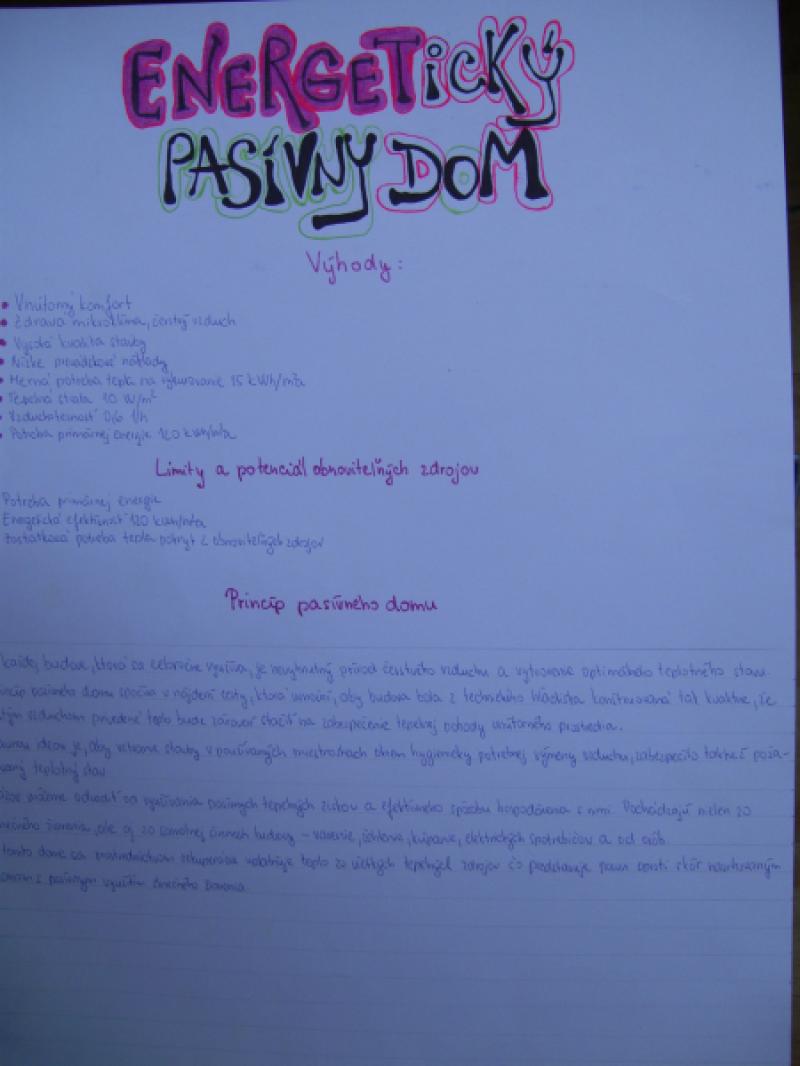 ENERGETiCKÝ
PASíVNY DOM
Výhody:
• Vnútorný komfort
• Zdravá mikroklíma, čerstvý vzduch
• Vysoká kvalita stavby
• Nízke prevádzkové náklady
• Merná potreba tepla na vykurovanie 15 kWh/m²a
• Tepelná strata 10 W/m²
• Vzduchotesnosť 0,6 1/h
• Potreba primárnej energie 120 kWh/m²a
Limity a potenciál obnoviteľných zdrojov
Potreba primárnej energie
Energetická efektívnosť 120 kWh/m²a
zostatková potreba tepla pokryť z obnoviteľných zdrojov
Princíp pasívneho domu
každej budove, ktorá sa celoročne využíva, je nevyhnutný prívod čerstvého vzduchu a vytvorenie optimálneho teplotného stavu.
princíp pasívneho domu spočíva v nájdení cesty, ktorá umožní, aby budova bola z technického hľadiska konštruovaná tak kvalitne, že
vzduchom privedené teplo bude zároveň stačiť na zabezpečenie tepelnej pohody vnútorného prostredia.
ideou je, aby vetranie stavby v používaných miestnostiach okrem hygienicky potrebnej výmeny vzduchu, zabezpečilo taktiež poža-
vaný teplotný stav.
môžeme odvodiť od využívania pasívnych tepelných ziskov a efektívneho spôsobu hospodárenia s nimi. Pochádzajú nielen zo
slnečného žiarenia, ale aj zo samotnej činnosti budovy - varenie, žehlenie, kúpanie, elektrických spotrebičov a od osôb.
tomto dome sa prostredníctvom rekuperácie nabaľuje teplo zo všetkých tepelných zdrojov čo predstavuje proti skôr navrhovaným
domom s pasívnym využitím slnečného žiarenia.